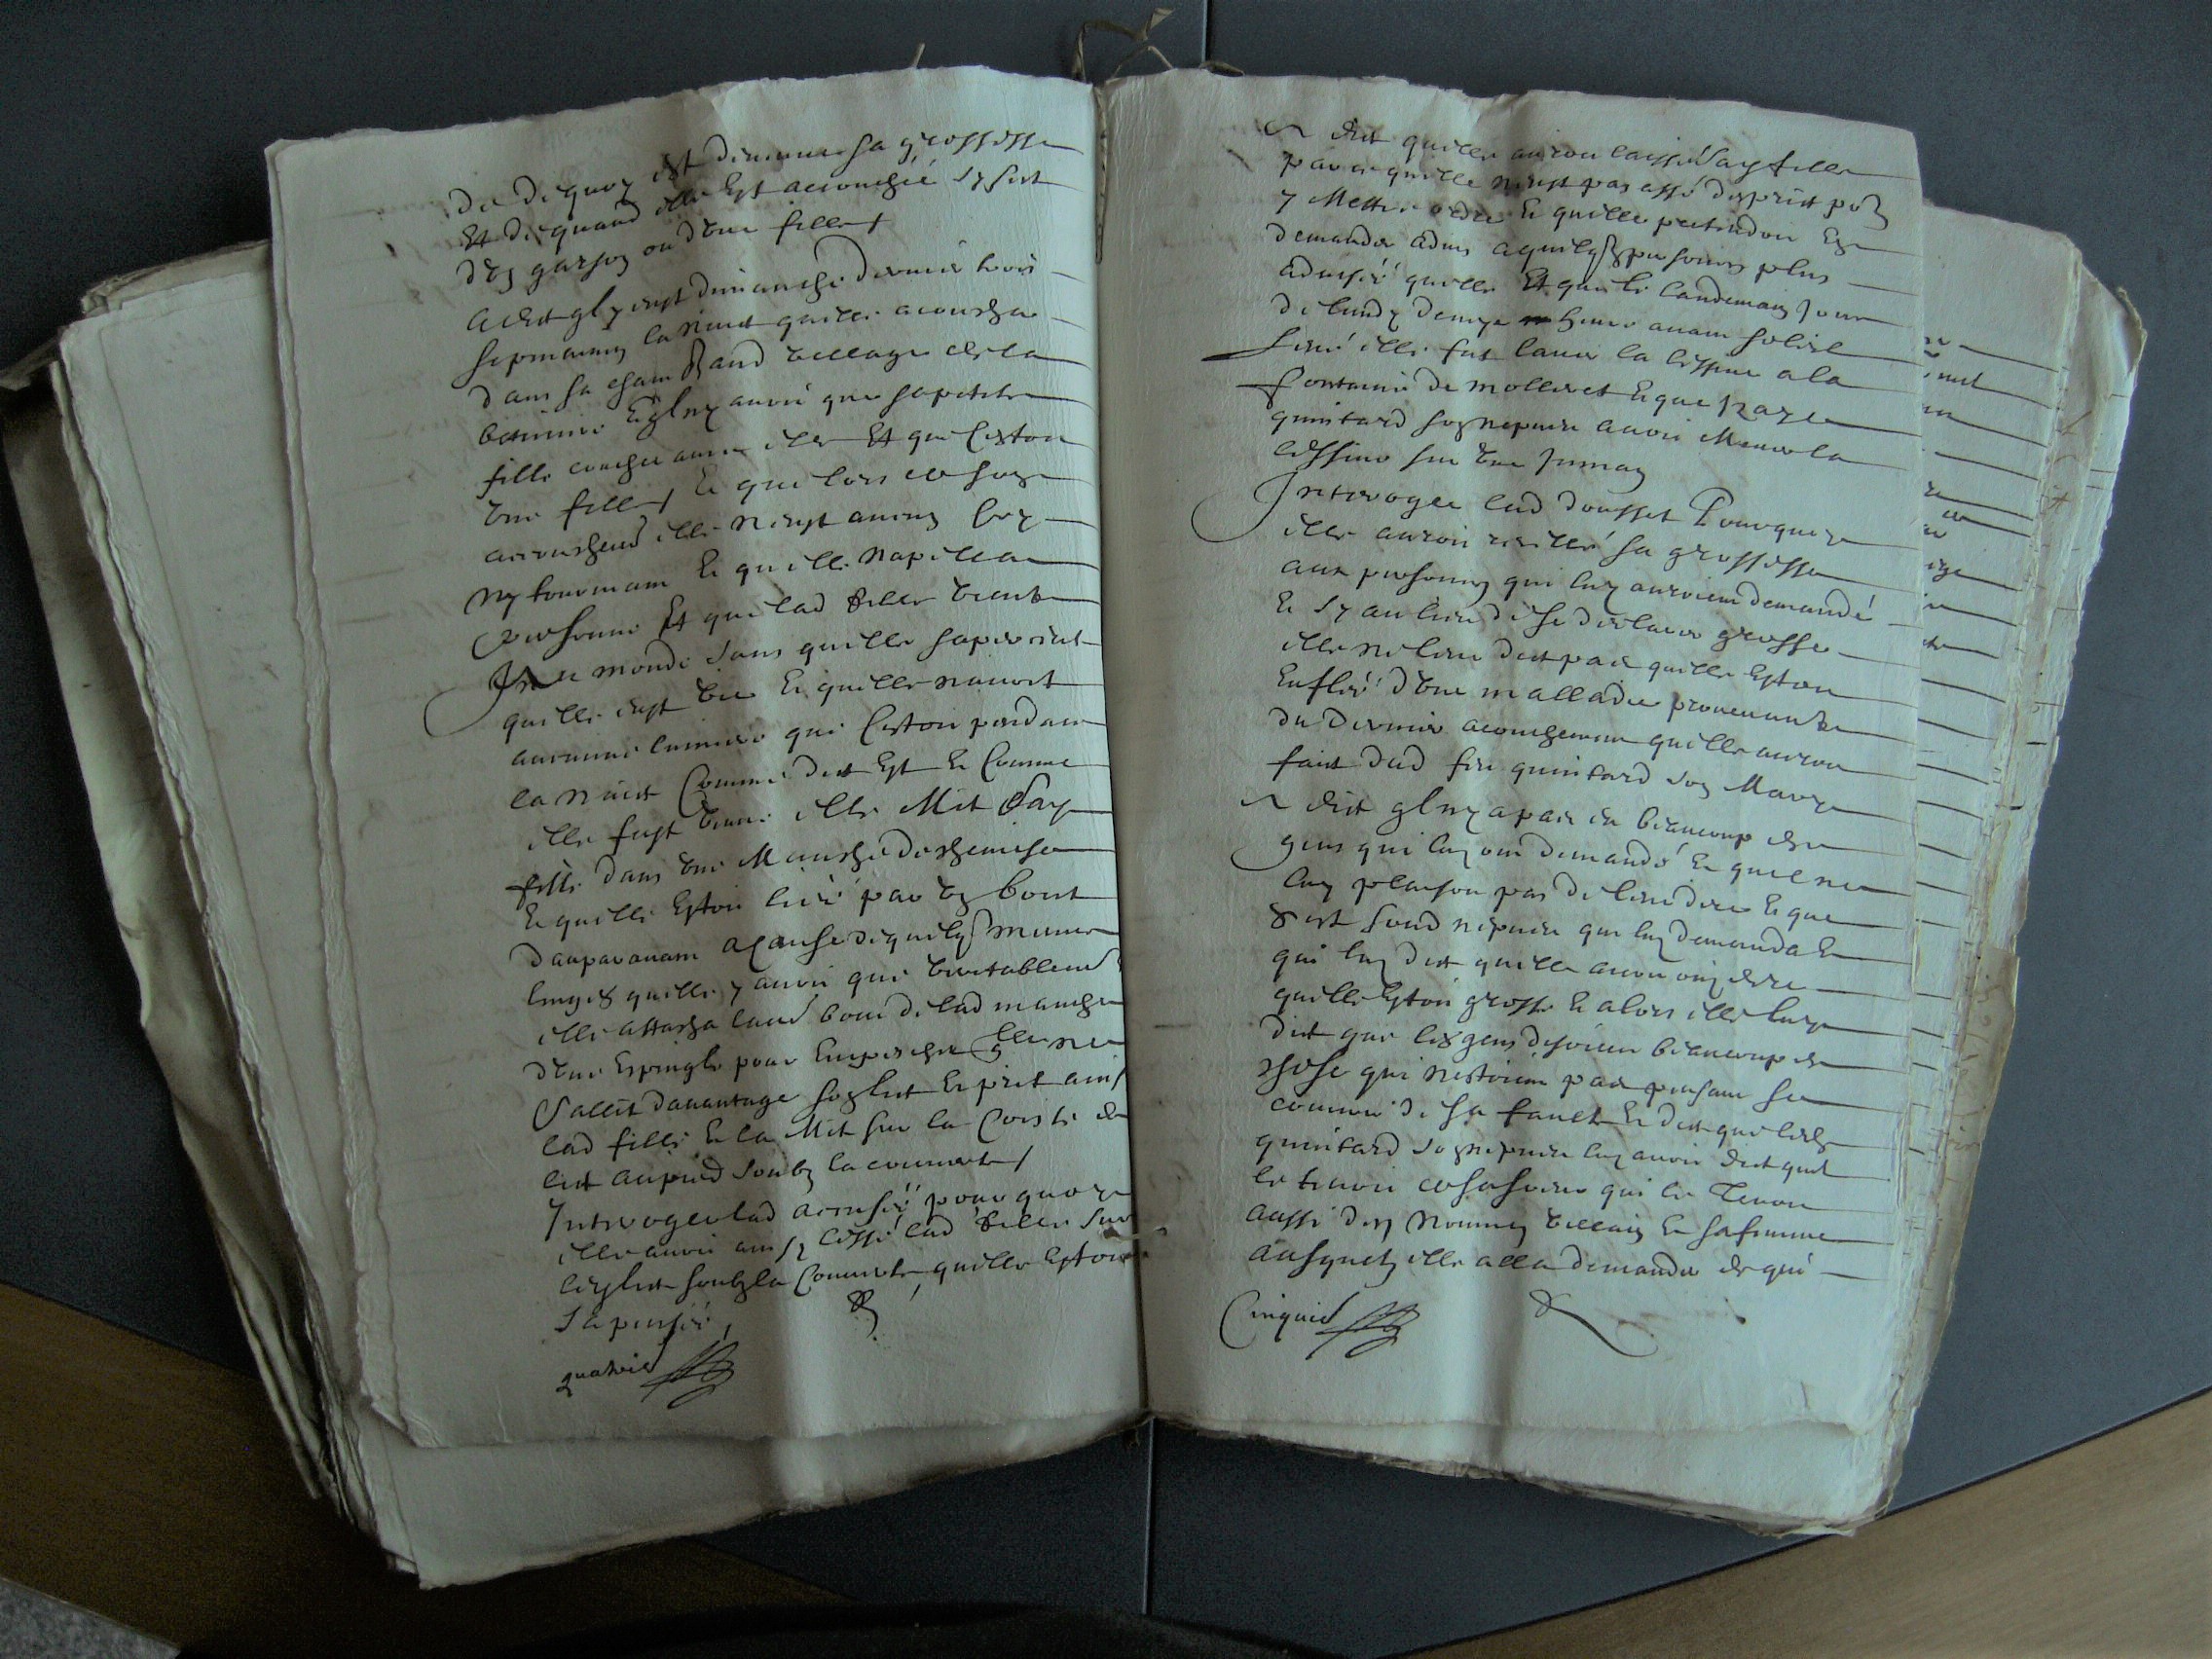 de dequoy est devenue sa grossesse
Et de quand elle est accouchée sy sest
dun garson ou dune fille
A dit quil y eust dimanche dernier trois
sepmaines la nuict quelle acoucha
dans sa chambre aud village de la
et quil ny avoit que sa petite
fille couchee avec elle Et que cestoit
une fille Et que lors de son
accouchement elle neust aucun
ny tourment Et quelle napella
personne Et que lad fille vint
au monde sans quelle saperceut
quelle eust vie Et quelle navoit
aucune lumiere que cestoit pendant
la nuict Comme dit est Et Comme
elle fust venue elle Mit sad
fille dans une Manche de chemise
Et quelle estoit liée par un bout
dauparavant a cause de quelques menus
linges quelle y avoit que veritablement
elle attacha laud bout de lad manche
dune Espingle pour Empescher quelle ne
sallit davantage son lict Et prit ainsi
lad fille Et la Mit sur la Coiste du
lict au pied soubz la couverte
Interogee lad accusée pourquoy
elle avoit ainsy laissé lad fille sur
le lict soubz la Couverte quelle estoit
sa pensée
quatrie

A dit quelle auroit laissé sad fille
par ce quelle neust pas assé desprit pour
y Mettre ordre Et quelle pretendoit En
demander advis a quelques personnes plus
advisée quelle Et que le landemain Jour
de lundy demye heure avant soleil
levé elle fut laver la lessive a la
fontaine de molleret Et que
quintard son nepveu avoit Mene la
lessive sur une Jument
Interogee lad dousset Pourquoy
elle auroit recellé sa grossesse
aux personnes qui luy auroient demandé
Et sy au lieu de se declarer grosse
elle ne leur dist pas quelle Estoit
Enflée dune malladie provenante
du dernier acouchement quelle auroit
faict dud feu quintard son Mary
A dit quil ny a pas eu beaucoup de
gens qui luy ont demandé Et quil ne
luy plaisoit pas de leur dire Et que
cest sond nepveu qui luy demanda Et
qui luy dit quelle avoit ouy dire
quelle Estoit grosse Et alors elle luy
dit que les gens disoient beaucoup de
chose qui nestoient pas pensant se
couvrir de sa faulte Et dit que led
quintard son nepveu luy avoit dit quil
le tenoit de sa soeur qui le Tenoit
aussi des Nommez Et sa femme
ausquelz elle alla demander de qui
Cinquie